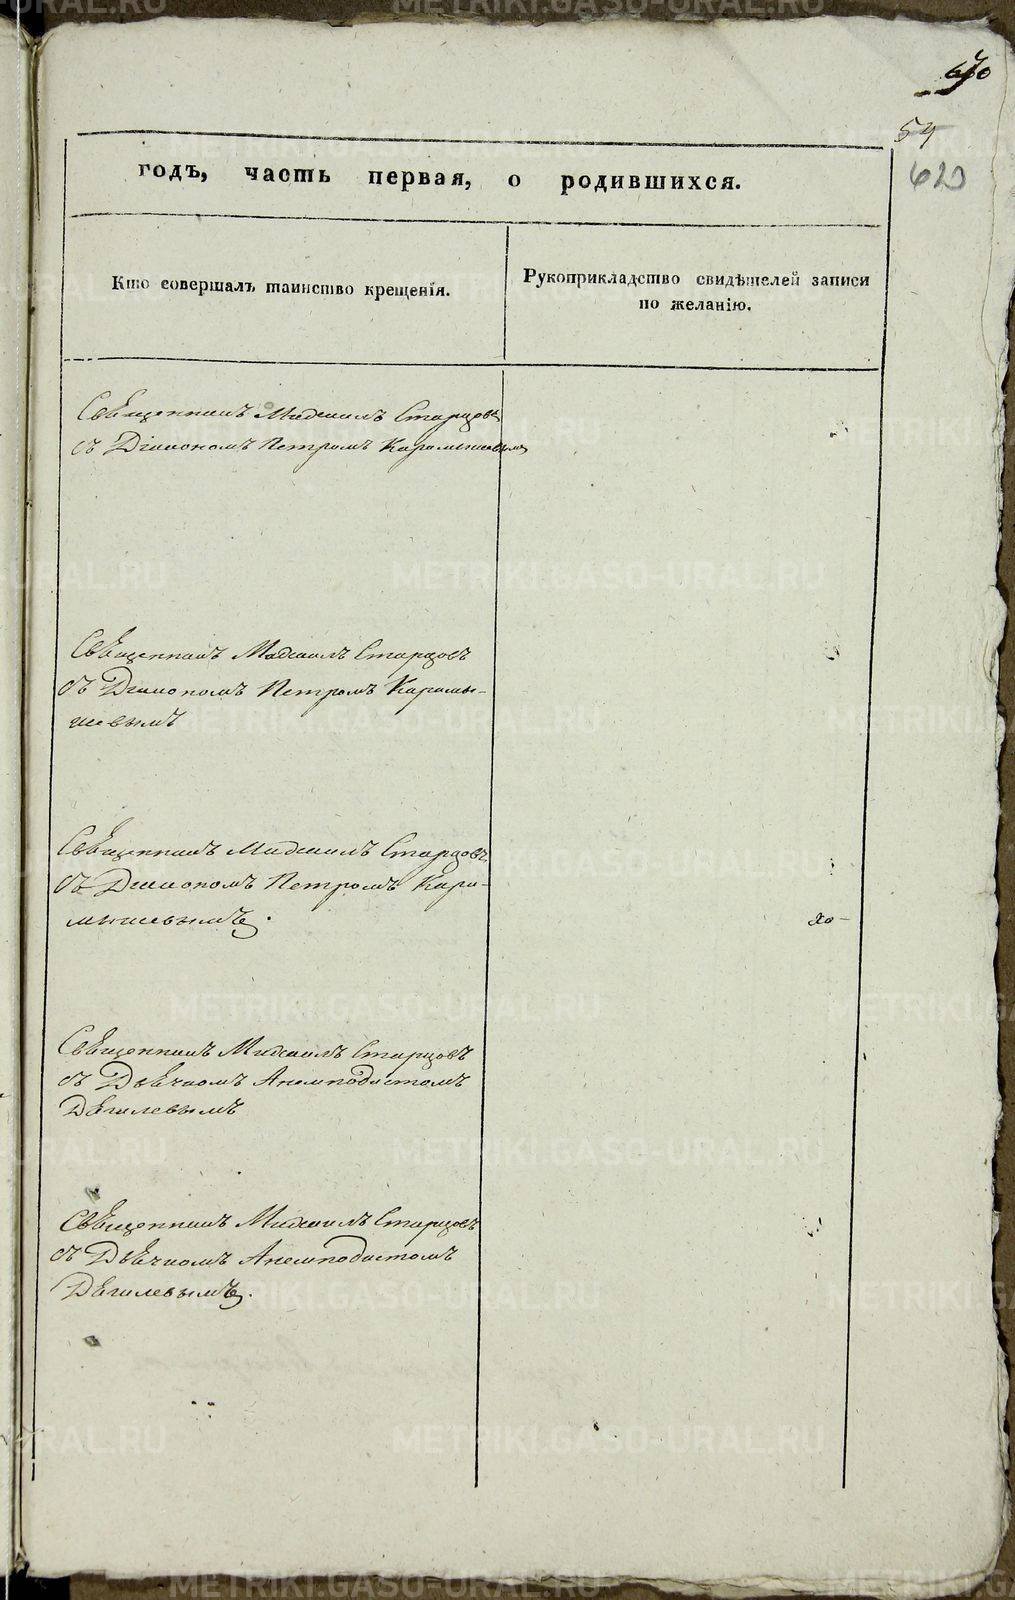 670
54
620
годъ, часть первая, о родившихся.
Кто совершалъ таинство крещенія.
Рукоприкладство свидѣтелей записи
по желанію.
Священникъ Михаилъ Старцовъ
съ Діакономъ Петромъ Карамышевымъ
Священникъ Михаилъ Старцовъ
съ Діакономъ Петромъ Карамы-
шевымъ
Священникъ Михаилъ Старцовъ
съ Діакономъ Петромъ Кара-
мышевымъ.
Священникъ Михаилъ Старцовъ
съ Дьячкомъ Анемподистомъ
Дягилевымъ
Священникъ Михаилъ Старцовъ
съ Дьячкомъ Анемподистомъ
Дягилевымъ.
METRIKI.GASO-URAL.RU